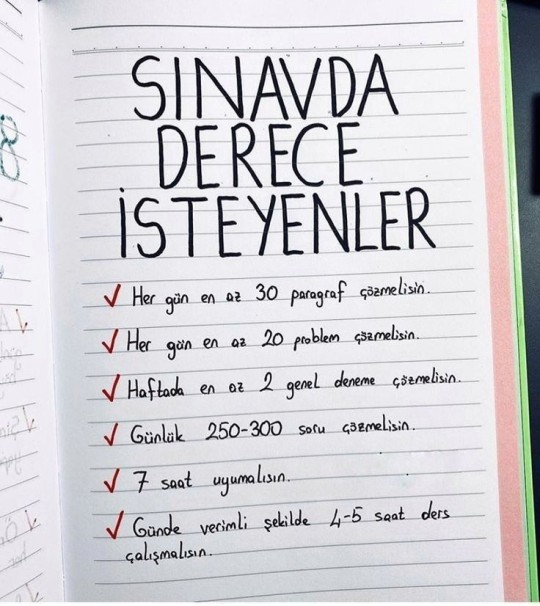 SINAVDA
DERECE
İSTEYENLER
Her gün en az 30 paragraf çözmelisin.
Her gün en az 20 problem çözmelisin.
Haftada en az 2 genel deneme çözmelisin.
Günlük 250-300 soru çözmelisin.
7 saat uyumalısın.
Günde verimli şekilde 4-5 saat ders
çalışmalısın.